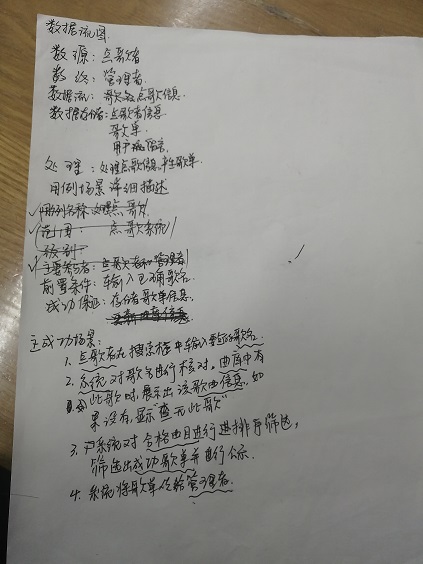 数据流图
数源：点歌者
数终：管理者
数据流：歌名、点歌信息
数据存储：点歌者信息
歌单
用户
处理：处理点歌信息，产生歌单
用例场景详细描述
用例名称：处理点歌
范围：点歌系统
级别：
主要参与者：点歌者和管理者
前置条件：输入正确歌名
成功保证：存储者歌单信息
主成功场景：
1. 点歌者在搜索框中输入要点的歌名
2. 系统对歌名进行核对，曲库中有
此歌时，展示出该歌曲信息，如
果没有，显示“查无此歌”
3. 系统对合格曲目进行进排序筛选，
筛选出成功歌单并进行公示
4. 系统将歌单传给管理者.